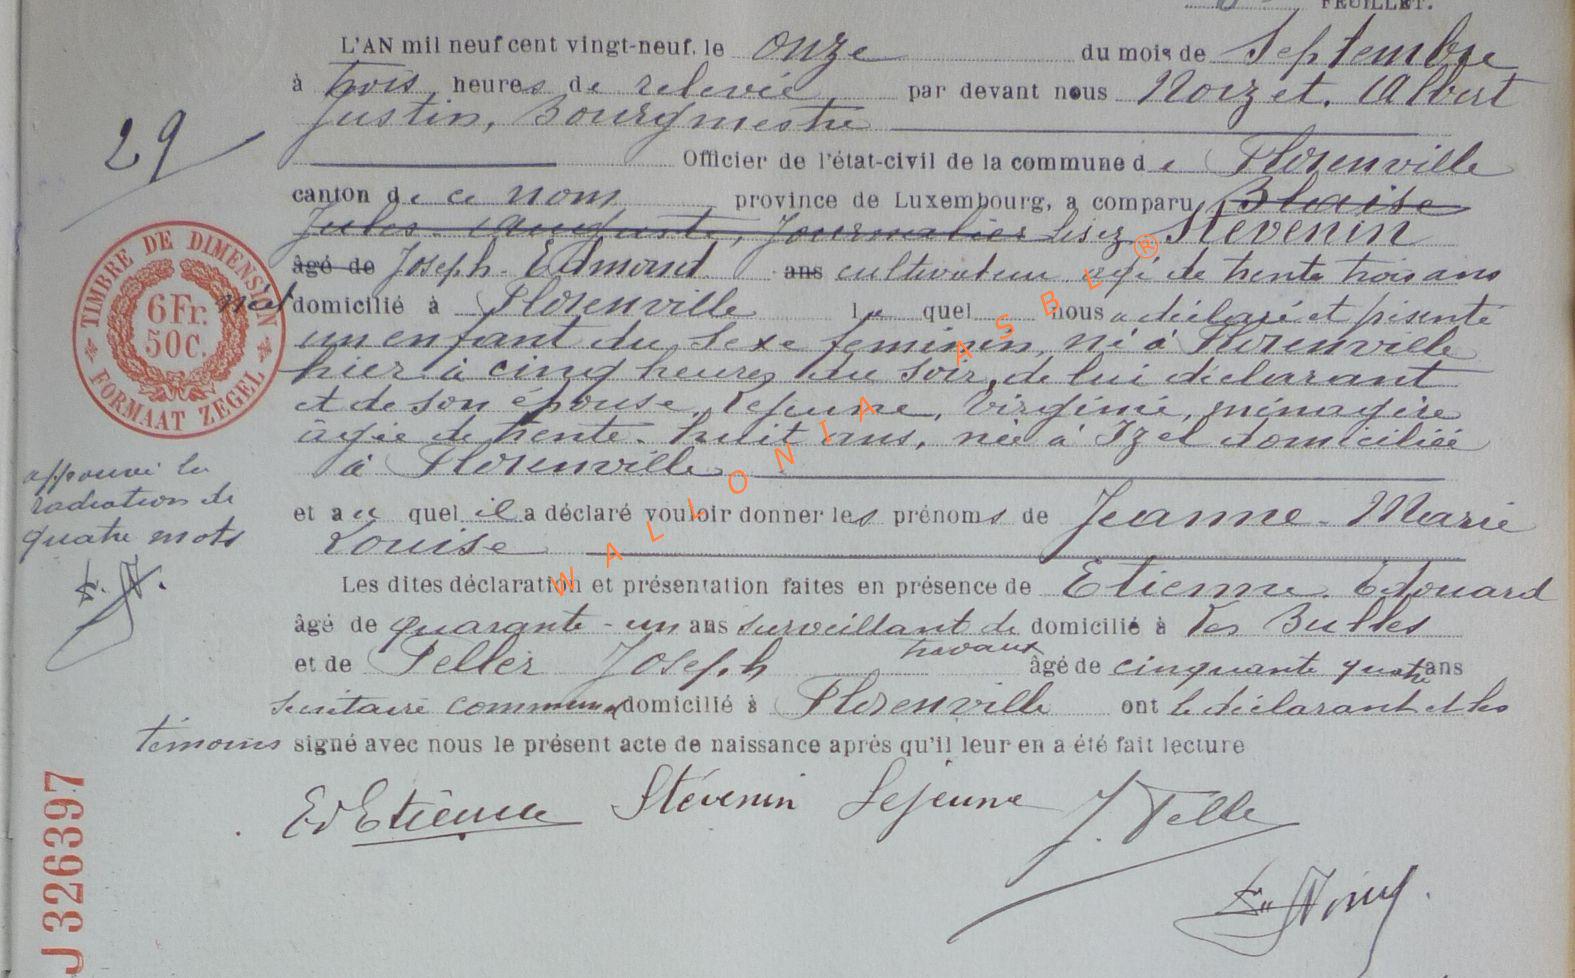 FEUILLET.
L'AN mil neuf cent vingt-neuf, le onze du mois de Septembre
à trois heures de relevée par devant nous Noizet, Albert
Justin, Bourgmestre
29
Officier de l'état-civil de la commune de Florenville
canton de ce nom province de Luxembourg, a comparu Blaise
Jules Auguste, Journalier Lisez Stévenin
âgé de Joseph Edmond ans cultivateur agé de trente trois ans
né et domicilié à Florenville lequel nous a déclaré et présenté
un enfant du sexe féminin, né à Florenville
hier à cinq heures du soir, de lui déclarant
et de son épouse, Lejeune, Virginie, ménagère
âgée de trente-huit ans, née à Izel domiciliée
à Florenville
et auquel il a déclaré vouloir donner les prénoms de Jeanne-Marie
Louise
Les dites déclaration et présentation faites en présence de Etienne Edouard
âgé de quarante-un ans surveillant de domicilié à Les Bulles
travaux
et de Peller Joseph âgé de cinquante quatre ans
secrétaire communal domicilié à Florenville ont le déclarant et les
témoins signé avec nous le présent acte de naissance après qu'il leur en a été fait lecture
approuvé la
radiation de
quatre mots
TIMBRE DE DIMENSION
6 Fr.
50 C.
FORMAAT ZEGEL
J 326397
Ed Etienne Stévenin Lejeune
WALLONIA ASBL ®